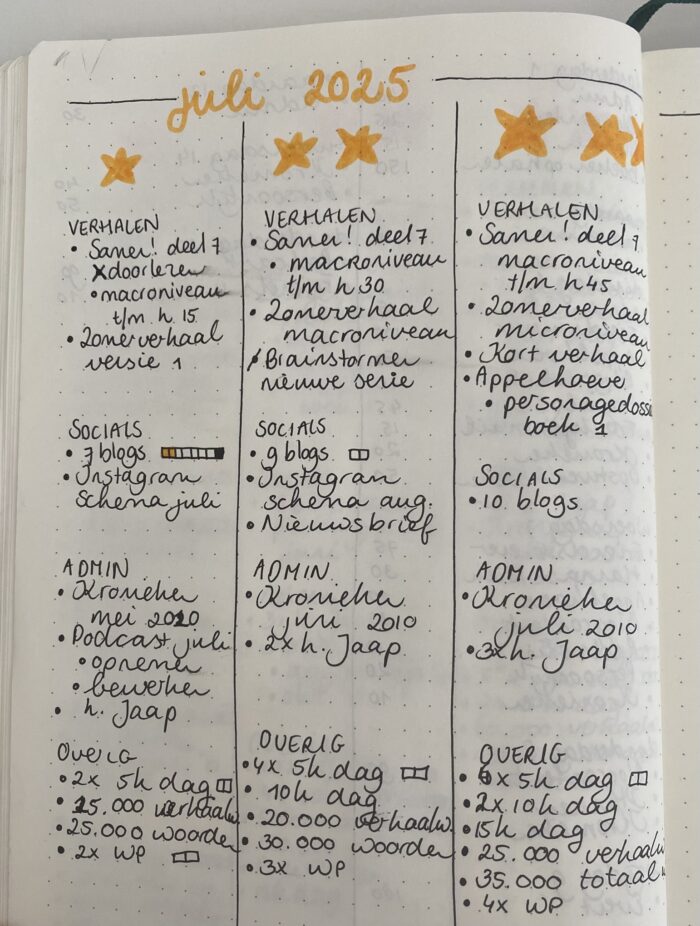 juli 2025
VERHALEN
• Samen! deel 7
x doorlezen
• macroniveau
t/m h 15
• Zomerverhaal
versie 1
SOCIALS
• 7 blogs
• Instagram
schema juli
ADMIN
• Kronieken
mei 2010
• Podcast juli
• opnemen
• bewerken
• h. Jaap
OVERIG
• 2x 5k dag
• 15.000 verhaalw.
• 25.000 woorden
• 2x WP
VERHALEN
• Samen! deel 7
• macroniveau
t/m h 30
• Zomerverhaal
macroniveau
• Brainstormen
nieuwe serie
SOCIALS
• 9 blogs
• Instagram
schema aug.
• Nieuwsbrief
ADMIN
• Kronieken
juni 2010
• 2x h. Jaap
OVERIG
• 4x 5k dag
• 10k dag
• 20.000 verhaalw.
• 30.000 woorden
• 3x WP
VERHALEN
• Samen! deel 7
macroniveau
t/m h 45
• Zomerverhaal
microniveau
• Kort verhaal
• Appelhoeve
• personagedossi
boek 1
SOCIALS
• 10 blogs
ADMIN
• Kronieken
juli 2010
• 3x h. Jaap
OVERIG
• 6x 5k dag
• 2x 10k dag
• 15k dag
• 25.000 verhaalw
• 35.000 totaalw
• 4x WP